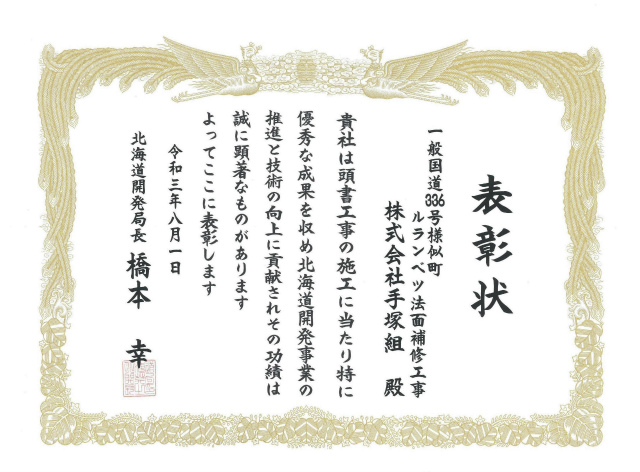 表彰状
一般国道336号様似町
ルランベツ法面補修工事
株式会社手塚組 殿
貴社は頭書工事の施工に当たり特に
優秀な成果を収め北海道開発事業の
推進と技術の向上に貢献されその功績は
誠に顕著なものがあります
よってここに表彰します
令和三年八月一日
北海道開発局長 橋本 幸